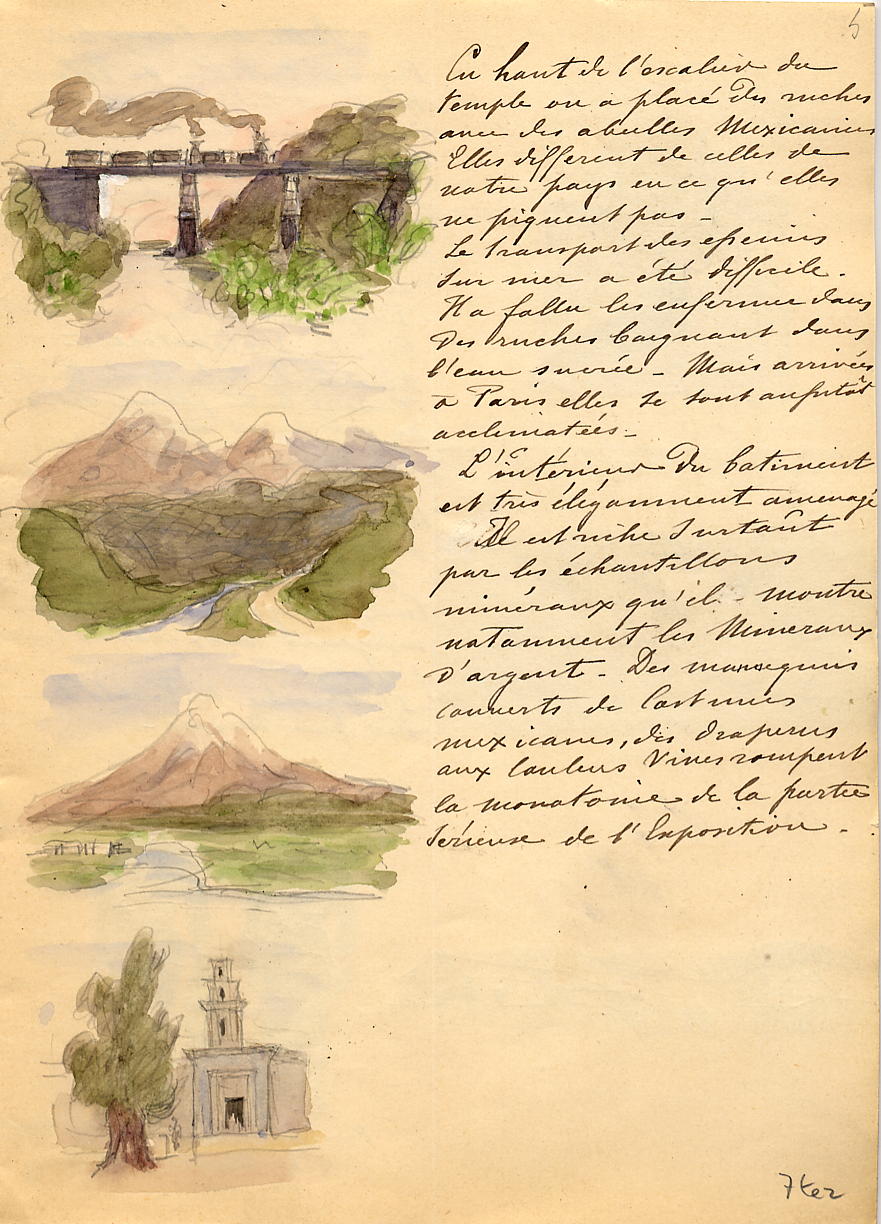 5
En haut de l'escalier du
temple on a placé des ruches
avec des abeilles Mexicaines
Elles different de celles de
notre pays en ce qu'elles
ne piquent pas -
Le transport des essaims
sur mer a été difficile.
Il a fallu les enfermer dans
des ruches baignant dans
l'eau sucrée - Mais arrivées
à Paris elles se sont aussitôt
acclimatées -
L'intérieur du batiment
est très élégamment amenagé
Il est riche surtout
par les échantillons
minéraux qu'il montre
notamment les Mineraux
d'argent - Des mannequins
couverts de Costumes
mexicains, des draperies
aux couleurs vives rompent
la monotonie de la partie
sérieuse de l'Exposition -
7 ter